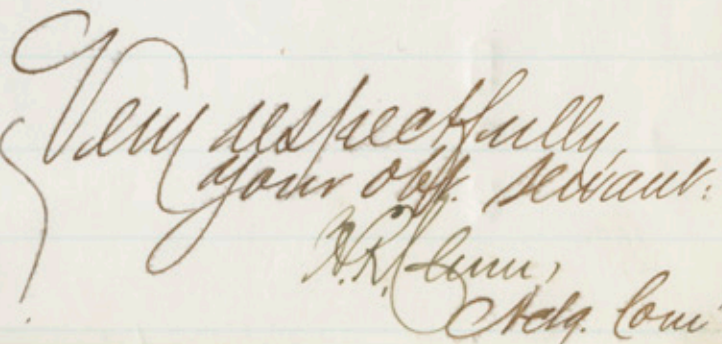 Very respectfully
your obt. servant.
H.R. Clum,
Actg. Com